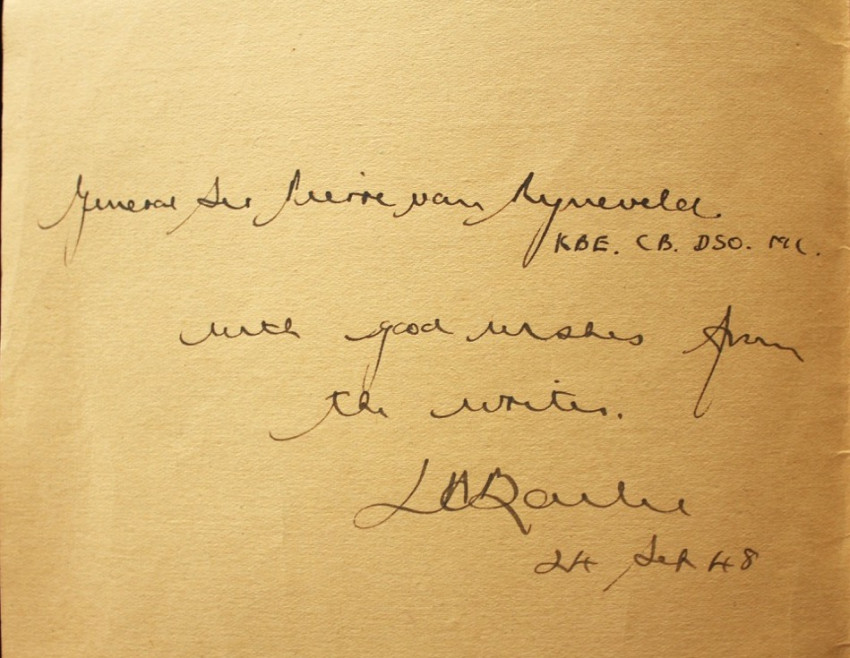 General Sir Pierre van Ryneveld.
KBE. CB. DSO. MC.
with good wishes from
the writer.
24 Sep 48